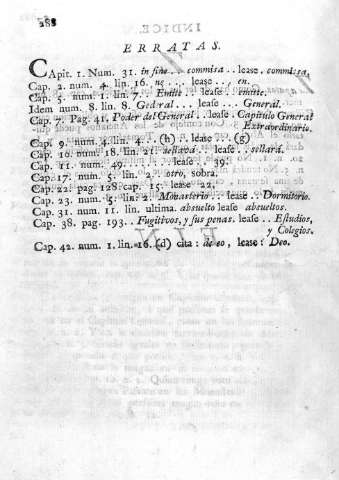 288
ERRATAS.
CApit. 1. Num. 31. in fine . . commisa . . lease, commissa,
Cap. 2. num. 4. lin. 16. ne . . . lease . . , en.
Cap. 5. num. 1. lin. 7. . Emilie . . lease . . emitte.
Idem num. 8. lin. 8. Gedral . . . lease . . . General.
Cap. 7. Pag. 41. Poder del General . . lease . Capitulo General
Extraordinario.
Cap. 9. num. 4. lin. 4. . . (h) . . lease . . (g)
Cap. 10. num. 18. lin. 21. . . . lease . . sellarà.
Cap. 11. num. 49. . . . . . lease . . 39.
Cap. 17. num. 5. lin. 2. otro, sobra.
Cap. 22. pag. 128. cap. 15. lease 22.
Cap. 23. num. 5. lin. 2. Monasterio . . . lease . . Dormitorio.
Cap. 31. num. 11. lin. ultima. absuelto lease absueltos.
Cap. 38. pag. 193. . Fugitivos, y sus penas. lease . . Estudios,
y Colegios.
Cap. 42. num. 1. lin. 16. (d) cita : de eo, lease : Deo.